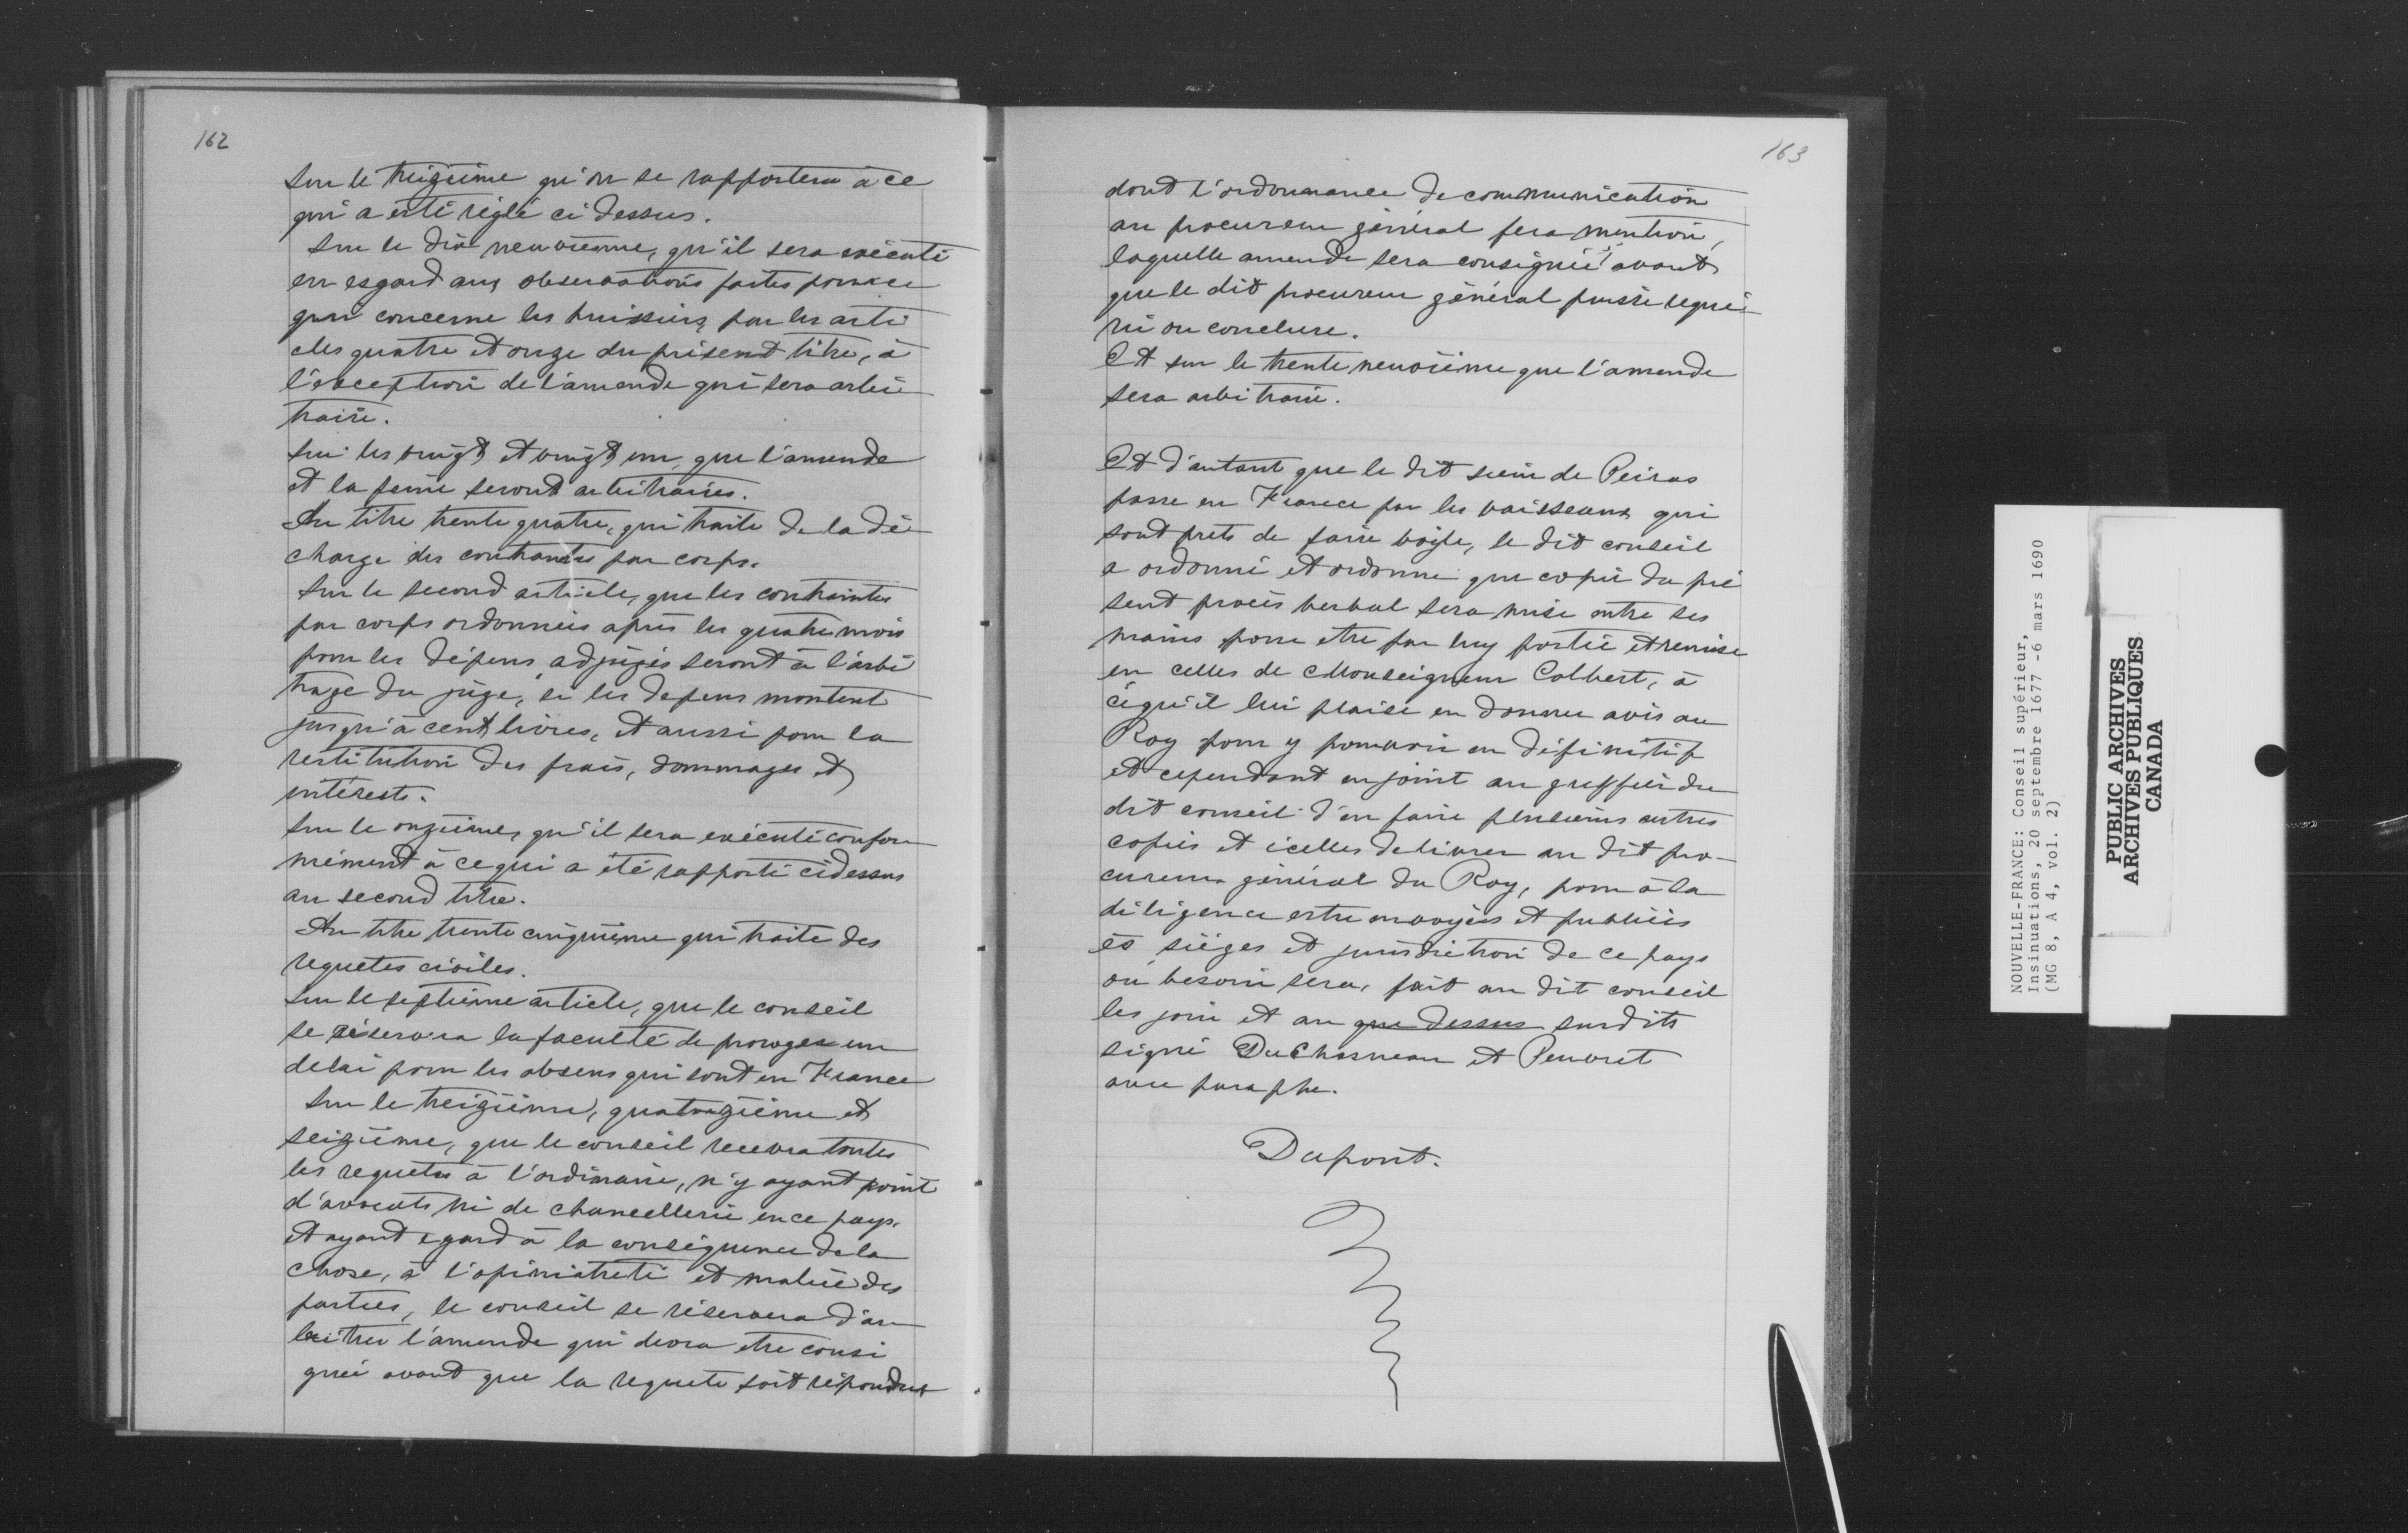 162
Sur le treizième qu'on se rapportera à ce
qui a esté réglé ci dessus.
Sur le dix neuvième, qu'il sera exécuté
en esgard aux observations faites pour ce
qui concerne les huissiers par les arti
cles quatre et onze du présent titre, à
l'exception de l'amende qui sera arbi
traire.
Sur les vingt et vingt un, que l'amende
et la peine seront arbitraires.
Au titre trente quatre, qui traite de la dé
charge des contraintes par corps.
Sur le second article, que les contraintes
par corps ordonnées après les quatre mois
pour les dépens adjugés seront à l'arbi
trage du juge, si les depens montent
jusqu'à cent livres, et aussi pour la
restitution des frais, dommages et
intérests.
Sur le onzième, qu'il sera exécuté confor
mément à ce qui a été rapporté cidessus
au second titre.
Au titre trente cinquième qui traite des
requetes civiles.
Sur le septième article, que le conseil
se réservera la faculté de proroger un
delai pour les absens qui sont en France
Sur le treizième, quatorzième et
seizième, que le conseil recevra toutes
les requetes à l'ordinaire, n'y ayant point
d'avocats ni de chancellerie en ce pays.
et ayant egard à la conséquence de la
chose, à l'opiniatreté et malice des
parties, le conseil se réservera d'ar
bitrer l'amende qui devra etre consi
gnée avant que la requete soit répondue
163
dont l'ordonnance de communication
au procureur général fera mention,
laquelle amende sera consignée avant
que le dit procureur général puisse requé
rir ou conclure.
Et sur le trente neuvième que l'amende
sera arbitraire.
Et d'autant que le dit sieur de Peiras
passe en France par les vaisseaux qui
sont prets de faire voile, le dit conseil
a ordonné et ordonne que copie du pré
sent procès verbal sera mise entre ses
mains pour etre par luy portée et remise
en celles de Monseigneur Colbert, à
cequ'il lui plaise en donner avis au
Roy pour y pourvoir en définitif
et cependant enjoint au greffier du
dit conseil d'en faire plusieurs autres
copies et icelles delivrer au dit pro-
cureur général du Roy, pour à la
diligence estre envoyées et publiées
ès sièges et jurisdiction de ce pays
où besoin sera, fait au dit conseil
les jour et an que dessus susdits
signé DuChesneau et Peuvret
avec paraphe.
Dupont.
NOUVELLE-FRANCE: Conseil supérieur,
Insinuations, 20 septembre 1677 -6 mars 1690
(MG 8, A 4, vol. 2)
PUBLIC ARCHIVES
ARCHIVES PUBLIQUES
CANADA